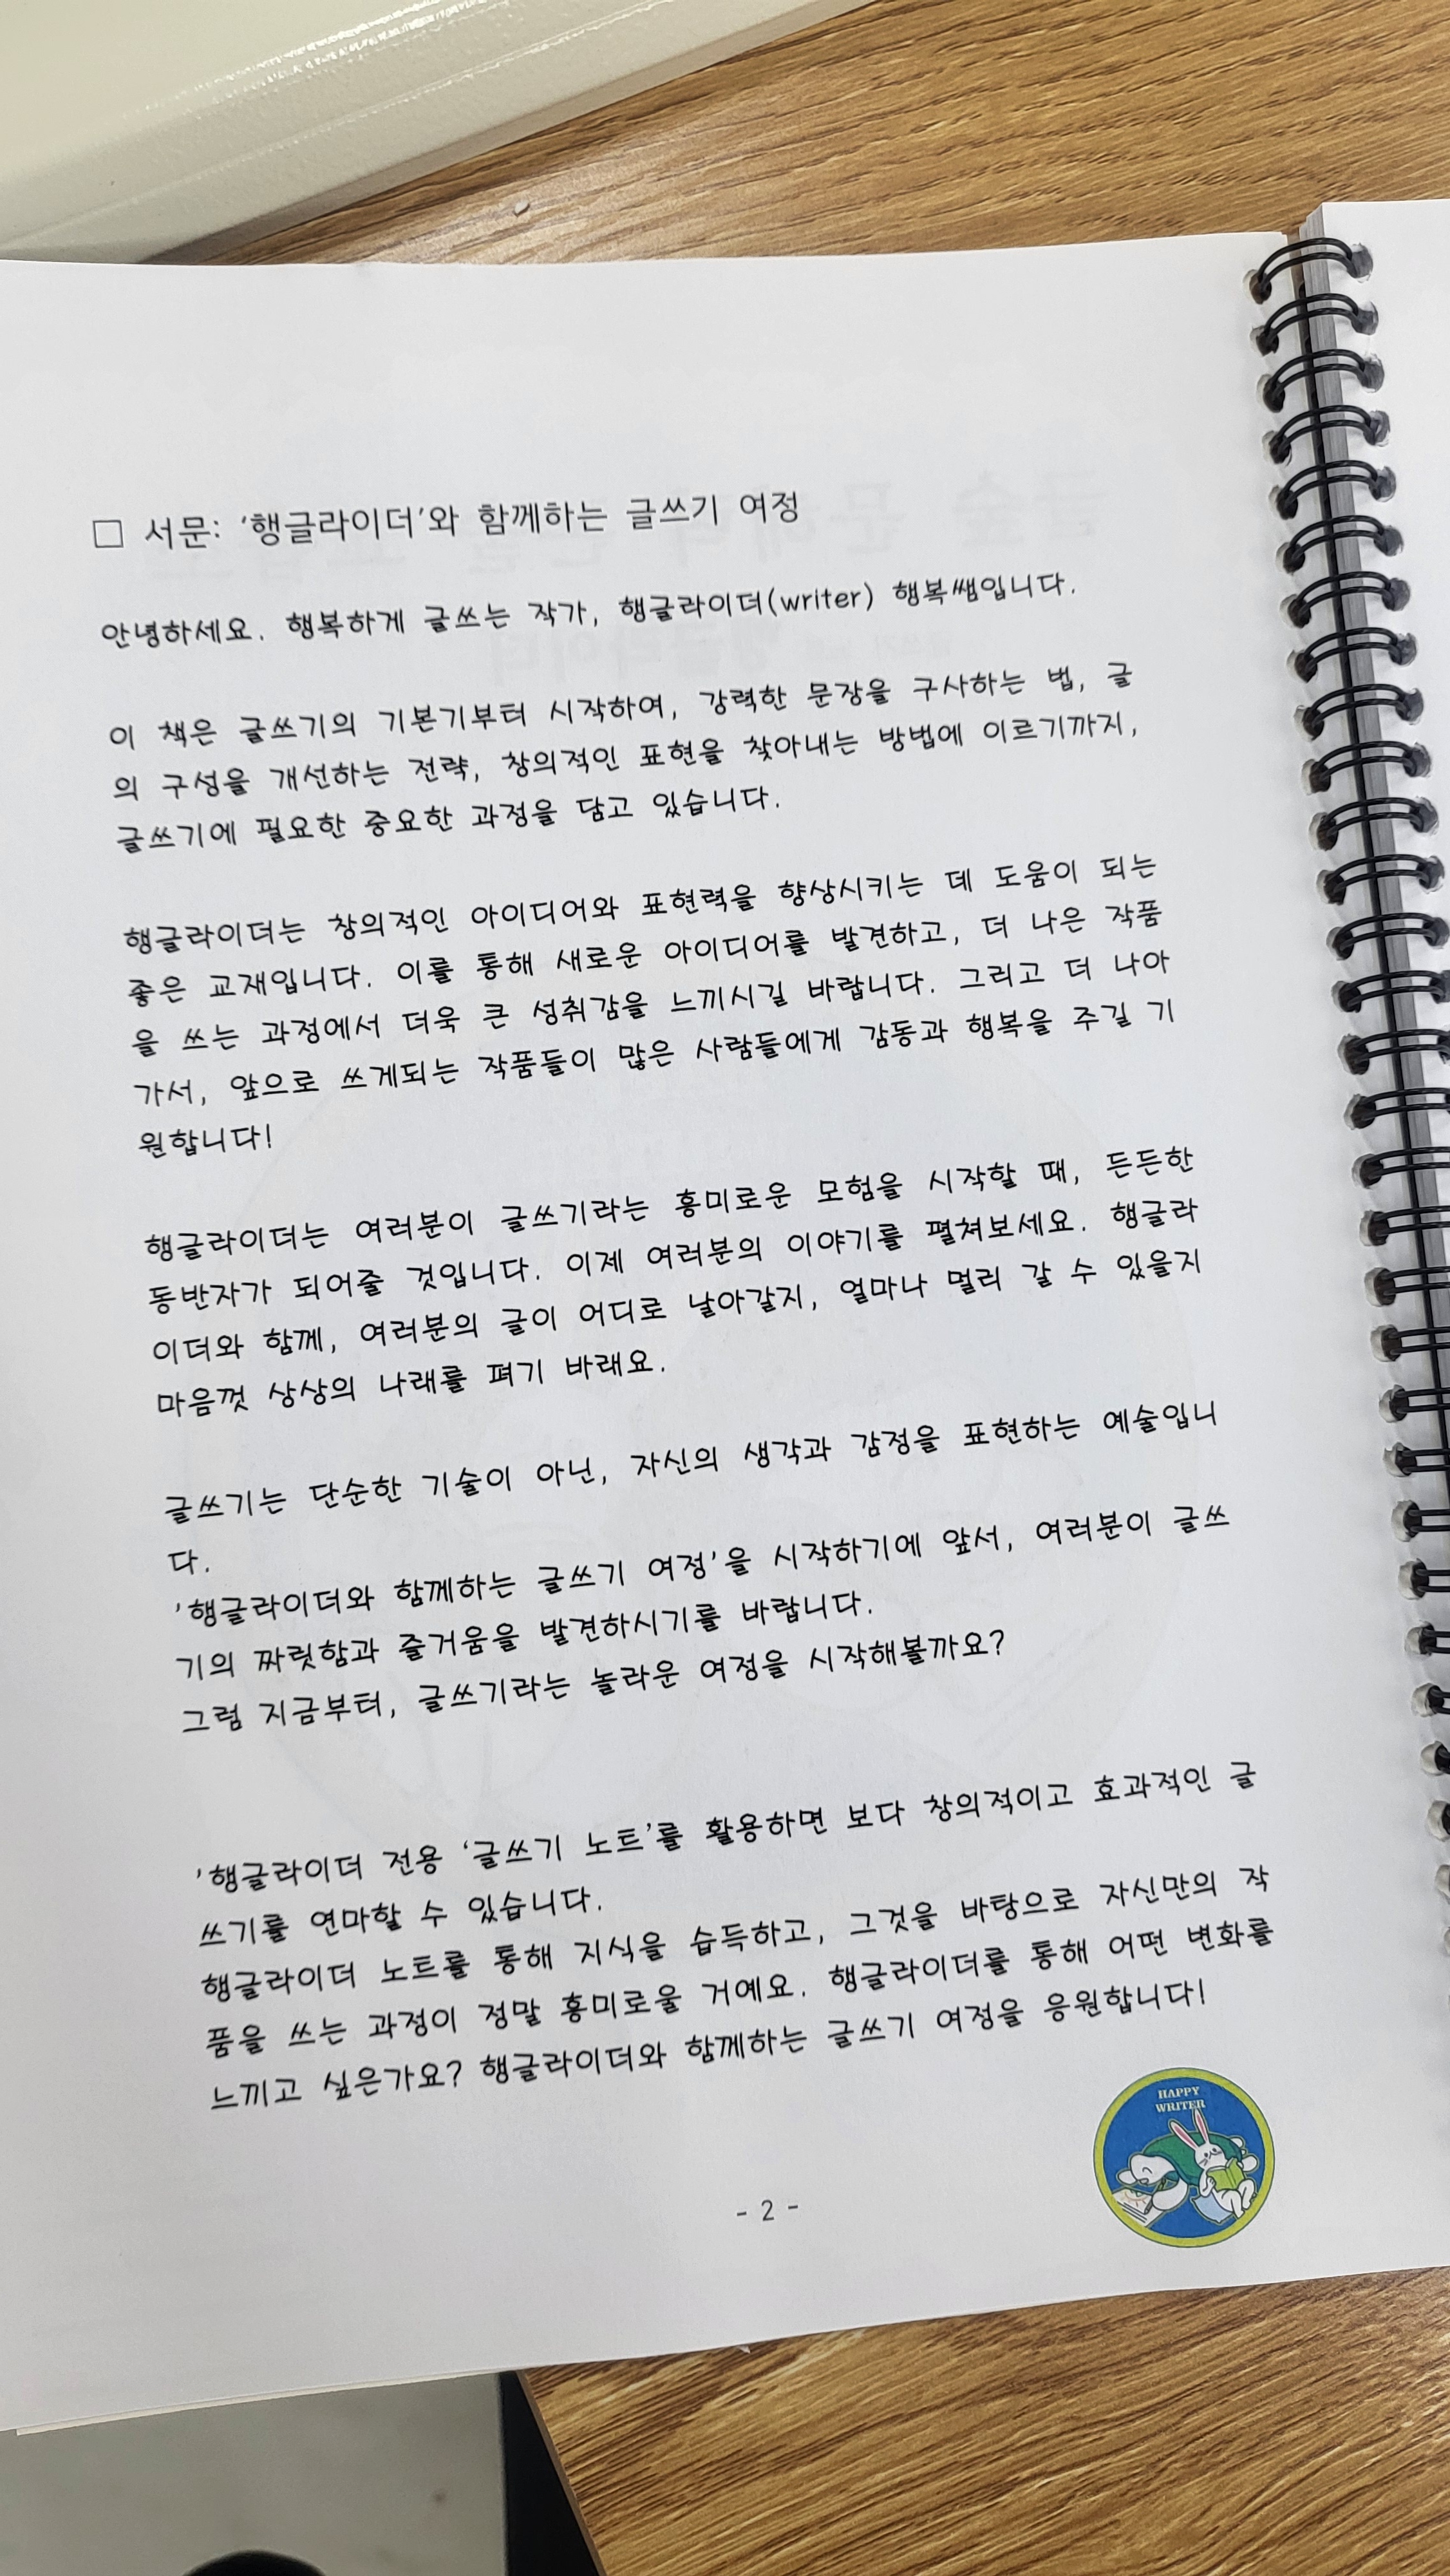 □ 서문: '행글라이더'와 함께하는 글쓰기 여정
안녕하세요. 행복하게 글쓰는 작가, 행글라이더(writer) 행복쌤입니다.
이 책은 글쓰기의 기본기부터 시작하여, 강력한 문장을 구사하는 법, 글
의 구성을 개선하는 전략, 창의적인 표현을 찾아내는 방법에 이르기까지,
글쓰기에 필요한 중요한 과정을 담고 있습니다.
행글라이더는 창의적인 아이디어와 표현력을 향상시키는 데 도움이 되는
좋은 교재입니다. 이를 통해 새로운 아이디어를 발견하고, 더 나은 작품
을 쓰는 과정에서 더욱 큰 성취감을 느끼시길 바랍니다. 그리고 더 나아
가서, 앞으로 쓰게되는 작품들이 많은 사람들에게 감동과 행복을 주길 기
원합니다!
행글라이더는 여러분이 글쓰기라는 흥미로운 모험을 시작할 때, 든든한
동반자가 되어줄 것입니다. 이제 여러분의 이야기를 펼쳐보세요. 행글라
이더와 함께, 여러분의 글이 어디로 날아갈지, 얼마나 멀리 갈 수 있을지
마음껏 상상의 나래를 펴기 바래요.
글쓰기는 단순한 기술이 아닌, 자신의 생각과 감정을 표현하는 예술입니
다.
'행글라이더와 함께하는 글쓰기 여정'을 시작하기에 앞서, 여러분이 글쓰
기의 짜릿함과 즐거움을 발견하시기를 바랍니다.
그럼 지금부터, 글쓰기라는 놀라운 여정을 시작해볼까요?
'행글라이더 전용 '글쓰기 노트'를 활용하면 보다 창의적이고 효과적인 글
쓰기를 연마할 수 있습니다.
행글라이더 노트를 통해 지식을 습득하고, 그것을 바탕으로 자신만의 작
품을 쓰는 과정이 정말 흥미로울 거예요. 행글라이더를 통해 어떤 변화를
느끼고 싶은가요? 행글라이더와 함께하는 글쓰기 여정을 응원합니다!
HAPPY
WRITER
- 2 -